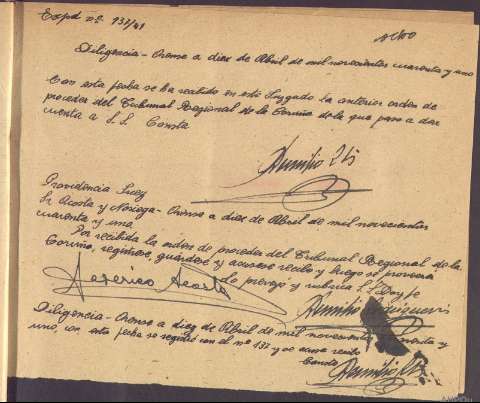 Expd nº. 137/41
Diligencia - Orense a diez de Abril de mil novecientos cuarenta y uno
Con esta fecha se ha recibido en este Juzgado la anterior orden de
proceder del Tribunal Regional de la Coruña de la que paso a dar
cuenta a S.S. Consta
Providencia Juez
Sr Acosta y Noriega - Orense a diez de Abril de mil novecientos
cuarenta y uno
Por recibida la orden de proceder del Tribunal Regional de la
Coruña, registrese, guárdese y acusese recibo y luego se proveerá
Lo proveyo y rubrica S.S. Doy fe
Federico Acosta
Diligencia - Orense a diez de Abril de mil novecientos cuarenta y
uno, con esta fecha se registró con el nº 137 y se acusó recibo
Consta